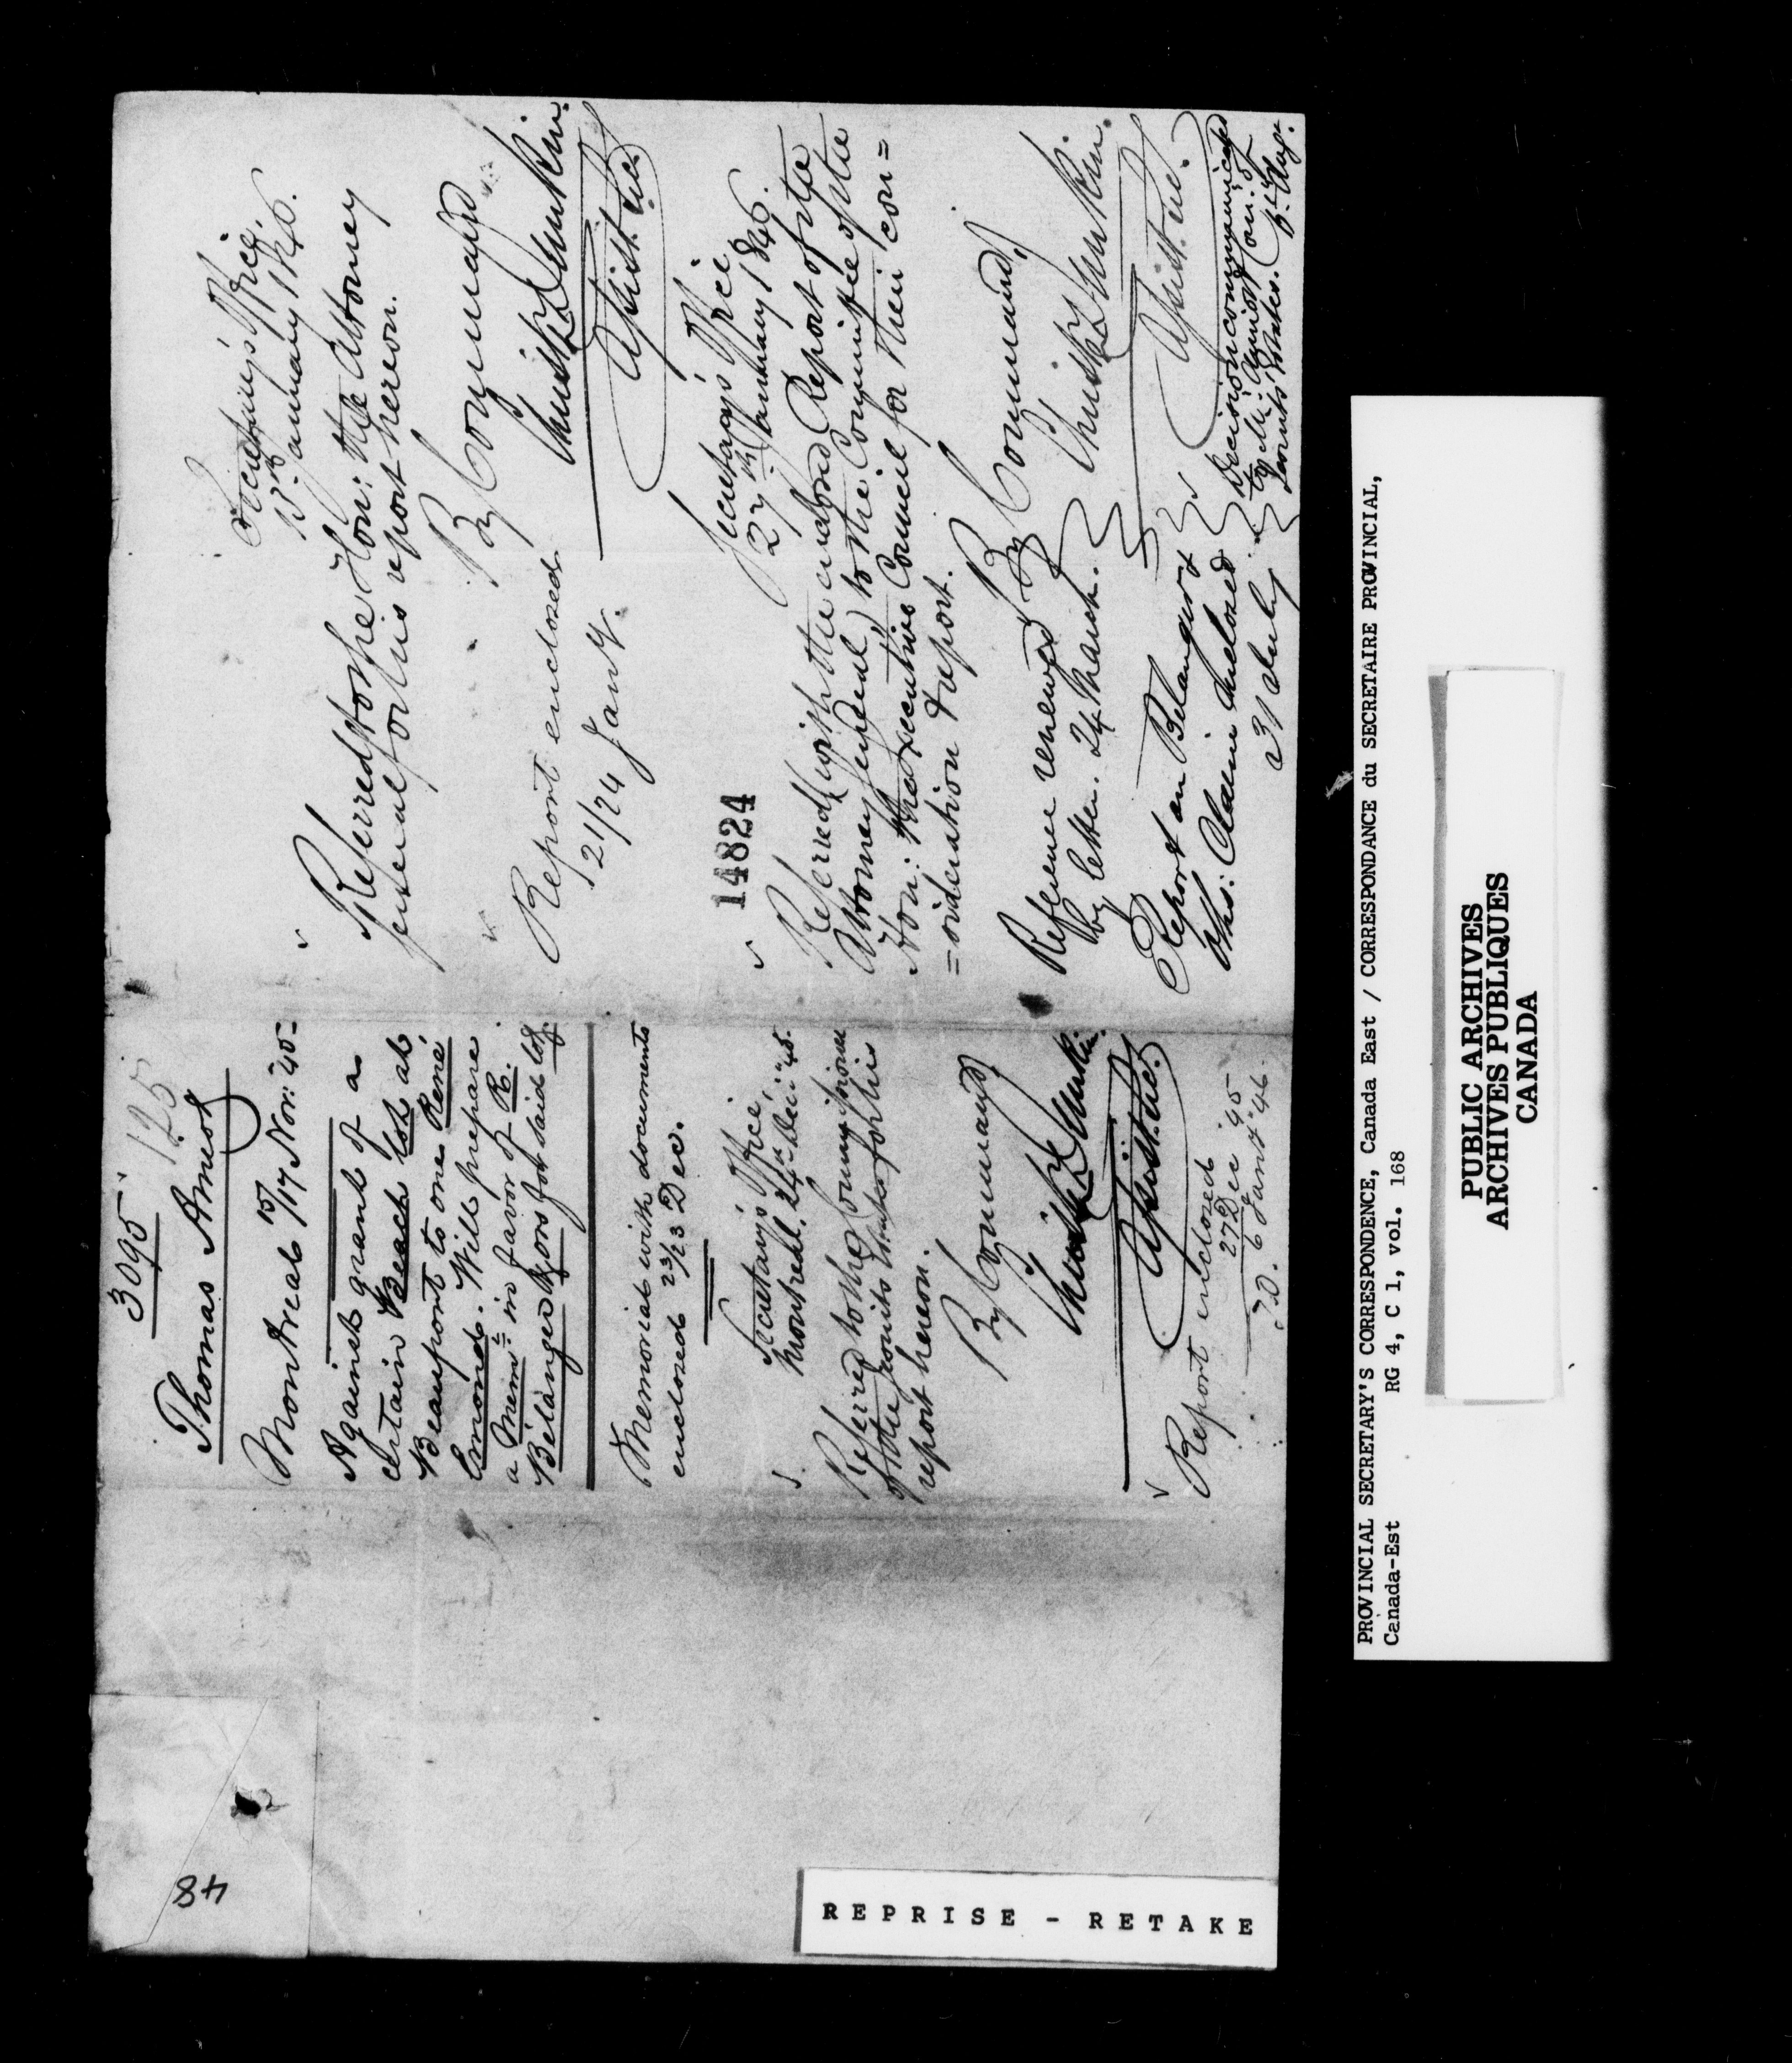 3095
125
Thomas Amiot
Montreal 15/17 Nov: '45
Against grant of a
certain Beach lot at
Beaumont to one René
Emond. Will prepare
a Mem in favor of R.
Belanger & ors for said lot.
Memorial with documents
enclosed 23/23 Dec.
Secretary's Office,
Montreal, 24th Decr '45.
Referred to the Commissioner
of the Jesuits Estates for his
report hereon.
By Command,
Christ Dunkin.
Assist. Sec.
Report enclosed
27 Dec '45
D. 6 Jany '46.
Secretary's Office,
13 January 1846.
Referred to the Hon: the Attorney
General for his report hereon.
By Command
Christ Dunkin.
Assist. Sec.
Report enclosed
21/24 Jany.
14824
Secretary's Office
27th January 1846.
Referred (with the enclosed Report of the
Attorney General) to the Committee of the
Hon: the Executive Council for their con=
=sideration & report.
By Command,
Christ Dunkin.
Assist. Sec.
Reference renewed
by letter. 24 March.
Report on Belanger &
oths: Claim enclosed
31 July
Decision communicated
to Mr. Amiot & Com: of
Jesuits' Estates. 6 Aug.
48
REPRISE - RETAKE
PROVINCIAL SECRETARY'S CORRESPONDENCE, Canada East / CORRESPONDANCE du SECRETAIRE PROVINCIAL,
Canada-Est RG 4, C 1, vol. 168
PUBLIC ARCHIVES
ARCHIVES PUBLIQUES
CANADA